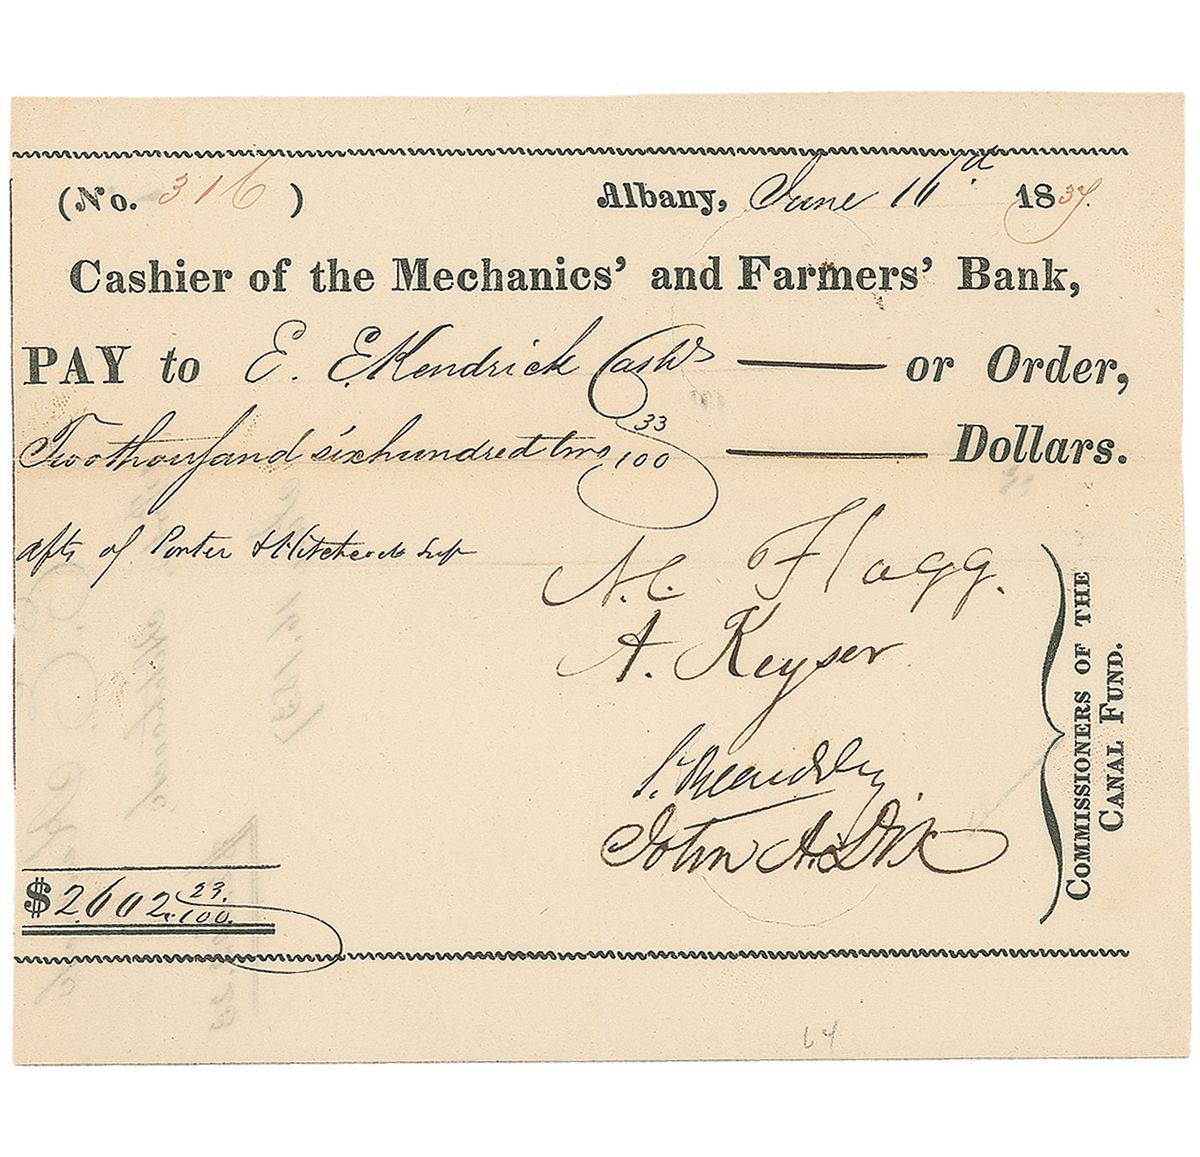 (No. 316) Albany, June 10th 1837.
Cashier of the Mechanics' and Farmers' Bank,
PAY to E. E. Kendrick Cashr or Order,
Two thousand six hundred two 33/100 Dollars.
of Porter
A. C. Flagg.
A. Keyser
John A. Dix
COMMISSIONERS OF THE
CANAL FUND.
$2.602 23/100.
64